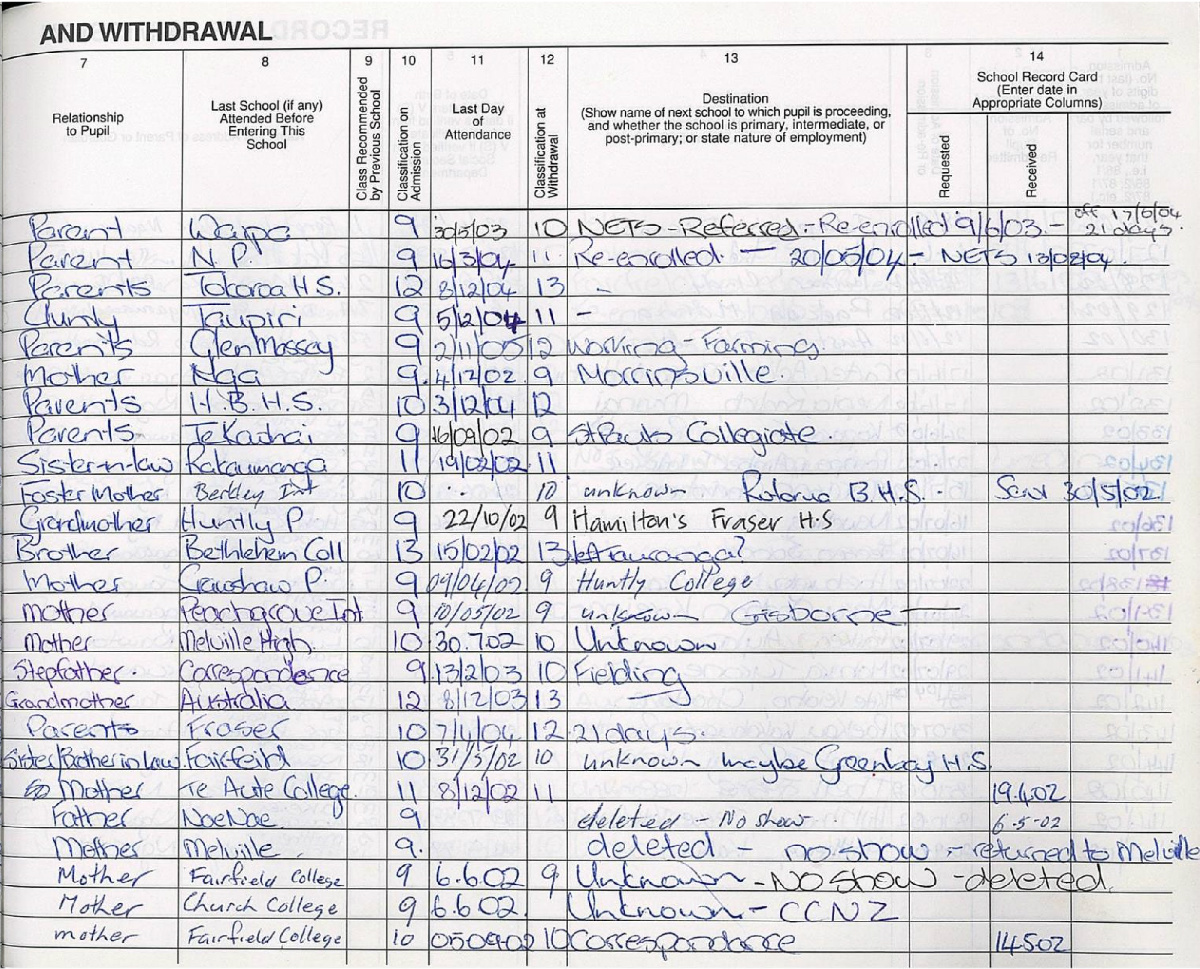 AND WITHDRAWAL
7 8 9 10 11 12 13 14
Relationship to Pupil
Last School (if any) Attended Before Entering This School
Class Recommended by Previous School
Classification on Admission
Last Day of Attendance
Classification at Withdrawal
Destination
(Show name of next school to which pupil is proceeding, and whether the school is primary, intermediate, or post-primary; or state nature of employment)
School Record Card
(Enter date in Appropriate Columns)
Requested
Received
off 17/6/04
Parent Waipa 9 30/5/03 10 NETS - Referred - Re-enrolled 9/6/03 - 21 days
Parent N.P. 9 16/3/04 11 Re-enrolled - 20/05/04 - NETS 13/08/04
Parents Tokoroa H.S. 12 8/12/04 13 -
Taupiri 9 5/12/04 11 -
Parents Glen Massey 9 2/11/05 12 Working - Farming.
Mother Nga 9. 4/12/02 9 Morrinsville.
Parents H.B.H.S. 10 3/12/04 12
Parents 9 16/09/02 9 St Pauls Collegiate
Sister-n-law Rakaumanga 11 19/02/02 11
Foster Mother Berkley Int 10 10 unknown Rotorua B.H.S. 30/5/02
Grandmother Huntly P. 9 22/10/02 9 Hamilton's Fraser H.S
Brother Bethlehem Coll 13 15/02/02 13 left Tauranga?
Mother Crawshaw P. 9 09/04/02 9 Huntly College
Mother Peachgrove Int 9 10/05/02 9 unknown Gisborne
Mother Melville High. 10 30.7.02 10 Unknown
Stepfather. Correspondence 9 13/2/03 10 Fielding
Grandmother Australia 12 8/12/03 13
Parents Fraser 10 7/4/04 12 21 days
Sister/Brother in Law. Fairfeild 10 31/5/02 10 unknown maybe Greenbay H.S.
Mother Te Aute College 11 8/12/02 11 19.4.02
Father NaeNae 9 deleted - No show 6-5-02
Mother Melville 9. deleted - no show - returned to Melville
Mother Fairfield College 9 6.6.02 9 Unknown - NO SHOW - deleted.
Mother Church College 9 6.6.02. Unknown - CCNZ
mother Fairfield College 10 05.09.02 10 Correspondance 14.5.02